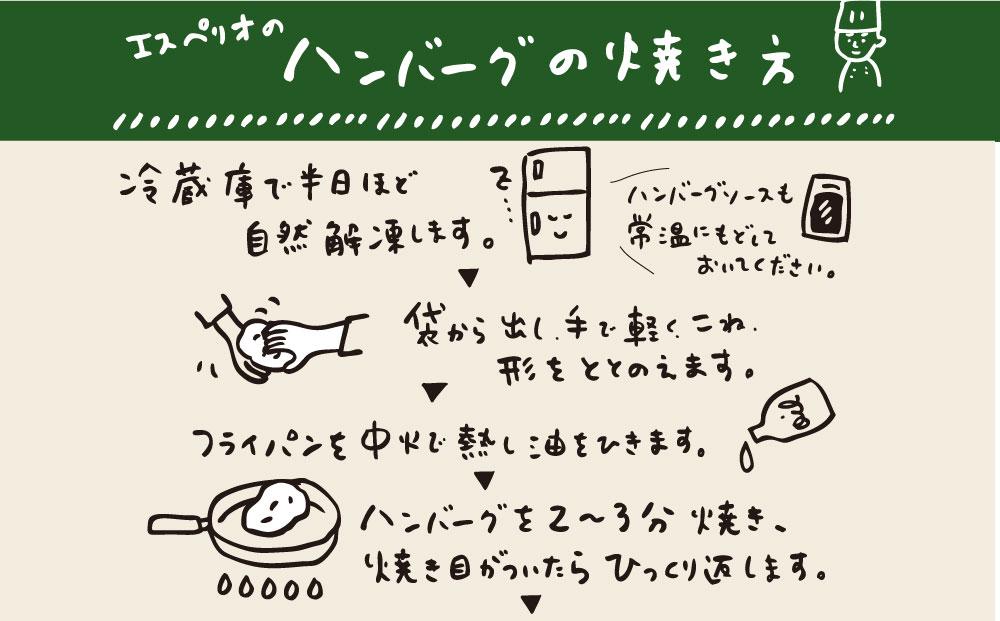 エスペリオの
ハンバーグの焼き方
冷蔵庫で半日ほど
自然解凍します。
ハンバーグソースも
常温にもどして
おいてください。
袋から出し、手で軽くこね、
形をととのえます。
フライパンを中火で熱し油をひきます。
ハンバーグを2〜3分焼き、
焼き目がついたらひっくり返します。